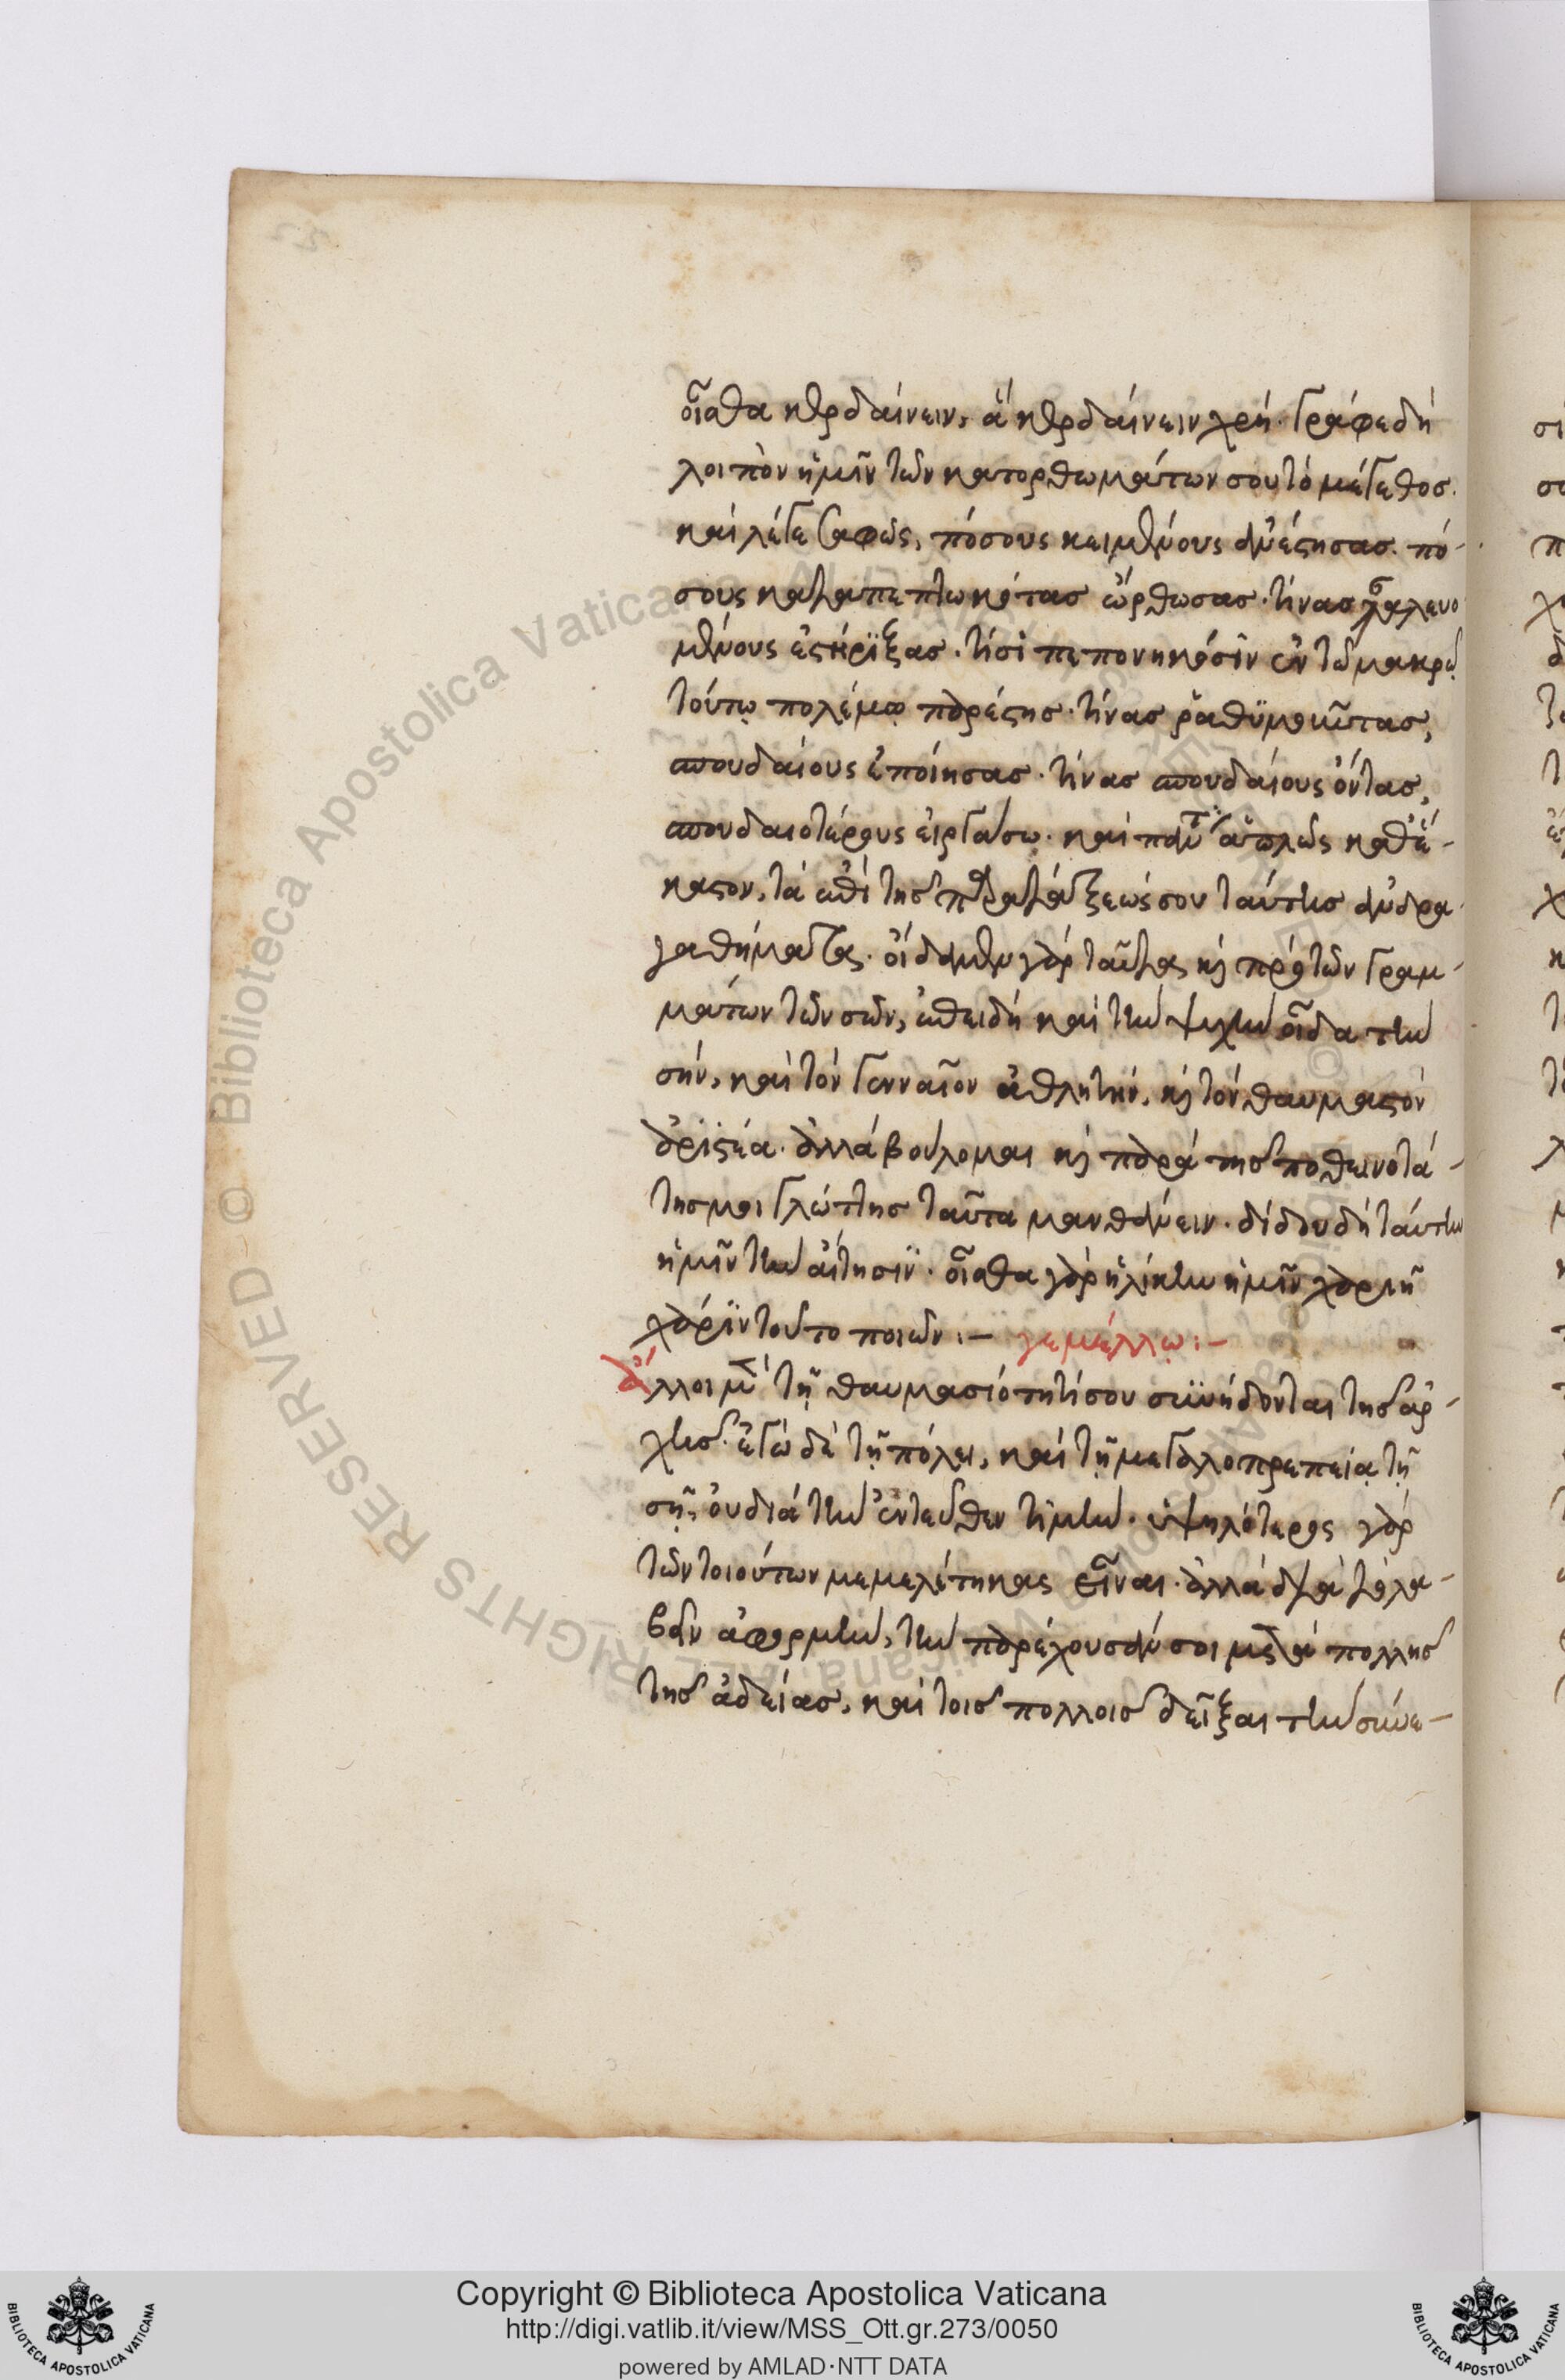 οἶσθα κερδαίνειν, ἃ κερδαίνειν χρή. Γράφε δὴ
λοιπὸν ἡμῖν τῶν κατορθωμάτων σου τὸ μέγεθος.
καὶ λέγε σαφῶς, πόσους κειμένους ἀνέστησας. πό-
σους καταπεπτωκότας ὤρθωσας. τίνας σαλευο
μένους ἐστήριξας. τίσι πεπονηκόσιν ἐν τῷ μακρῷ
τούτῳ πολέμῳ παρέστης. τίνας ῥαθυμοῦντας,
σπουδαίους ἐποίησας. τίνας σπουδαίους ὄντας,
σπουδαιοτέρους εἰργάσω. καὶ πάντα ἁπλῶς καθέ-
καστον, τὰ ἐπὶ τῆς παρατάξεώς σου ταύτης ἀνδρα-
γαθήματα. οἶδα μὲν γὰρ ταῦτα κ πρὸ τῶν γραμ-
μάτων τῶν σῶν, ἐπειδὴ καὶ τὴν ψυχὴν οἶδα τὴν
σήν, καὶ τὸν γενναῖον ἀθλητήν, κ τὸν θαυμαστὸν
ἀριστέα. ἀλλὰ βούλομαι κ παρὰ τῆς ποθεινοτά-
της μοι γλώττης ταῦτα μανθάνειν. δίδου δὴ ταύτην
ἡμῖν τὴν αἴτησιν. οἶσθα γὰρ ἡλίκην ἡμῖν χαριῇ
χάριν τοῦτο ποιῶν:— γεμέλλῳ:—
ἄλλοι μὲν τῇ θαυμασιότητί σου συνήδονται τῆς ἀρ-
χῆς. ἐγὼ δὲ τῇ πόλει, καὶ τῇ μεγαλοπρεπείᾳ τῇ
σῇ, οὐ διὰ τὴν ἐντεῦθεν τιμήν. ὑψηλότερος γὰρ
τῶν τοιούτων μεμελέτηκας εἶναι. ἀλλὰ διὰ τὸ λα-
βεῖν ἀφορμήν, τὴν παρέχουσάν σοι μετὰ πολλῆς
τῆς ἀδείας, καὶ τοῖς πολλοῖς δεῖξαι τὴν σύνε-
Copyright © Biblioteca Apostolica Vaticana
http://digi.vatlib.it/view/MSS_Ott.gr.273/0050
powered by AMLAD·NTT DATA